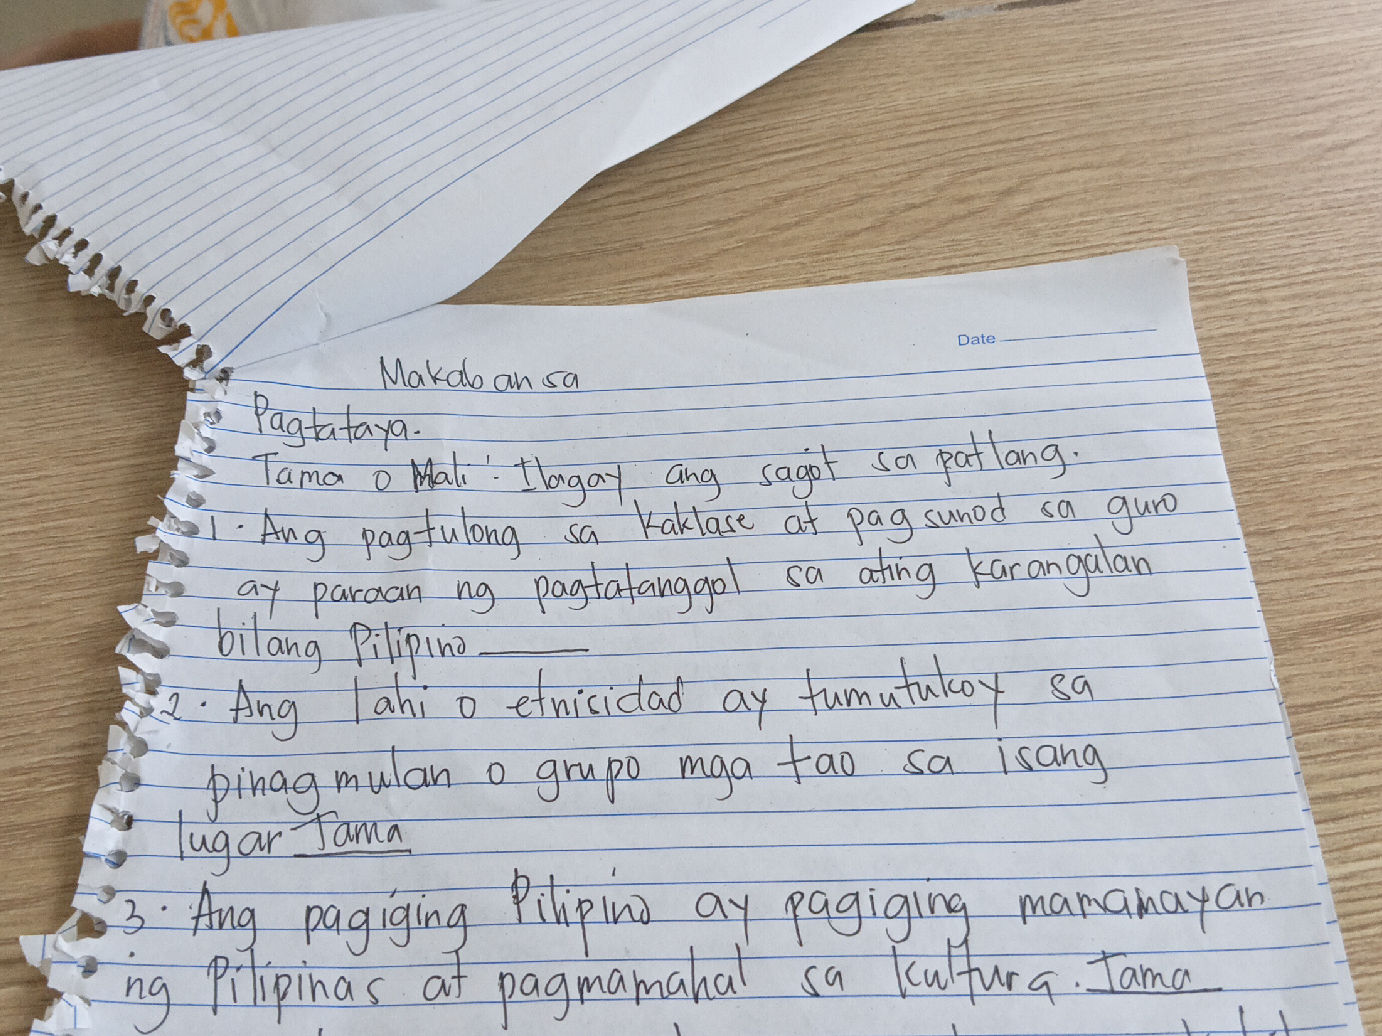 Date
Makabansa
Pagtataya.
Tama o Mali. Ilagay ang sagot sa patlang.
1. Ang pagtulong sa kaklase at pagsunod sa guro
ay paraan ng pagtatanggol sa ating karangalan
bilang Pilipino
2. Ang lahi o etnisidad ay tumutukoy sa
pinagmulan o grupo mga tao sa isang
lugar Tama
3. Ang pagiging Pilipino ay pagiging mamamayan
ng Pilipinas at pagmamahal sa kultura. Tama